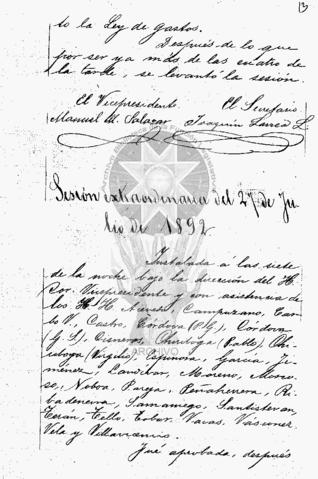 13
to la Ley de Gastos.
Después de lo que
por ser ya más de las cuatro de
la tarde, se levantó la sesión.
El Vicepresidente. El Secretario
Manuel M. Salazar Joaquín Larrea L.
Sesión extraordinaria del 27 de Ju-
lio de 1892
Instalada a las siete
de la noche bajo la dirección del H.
Sor. Vicepresidente y con asistencia de
los H. H. Campuzano,
V., Castro, Córdova (P.G.), Córdova
(G. S.), Cisneros, Chiriboga (Pablo), Chi-
riboga (Virgilio), Espinosa, García, Ji-
ménez, Landívar, Moreno, Moros-
so, Noboa, Pareja, Peñaherrera, Ri-
badeneira, Samaniego, Santistevan,
Terán, Tello, Tobar, Vásconez,
Vela y
Fué aprobada, después
ARCHIVO